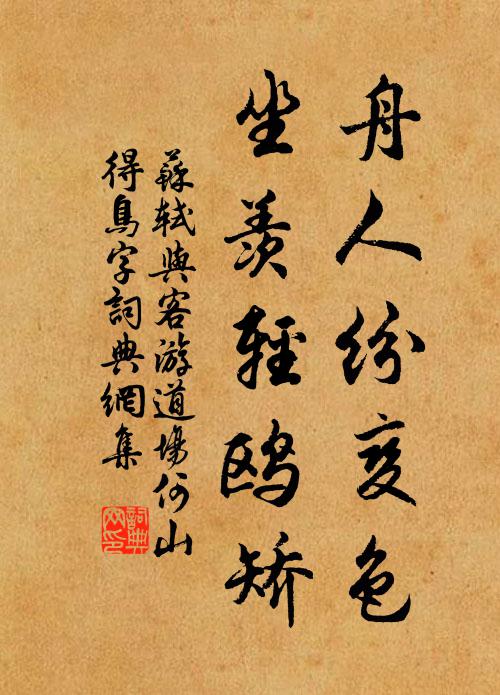 舟人紛變色
坐羨輕鷗矯
蘇軾與客游道場何山
得鳥字詞典網集
詞典
网印